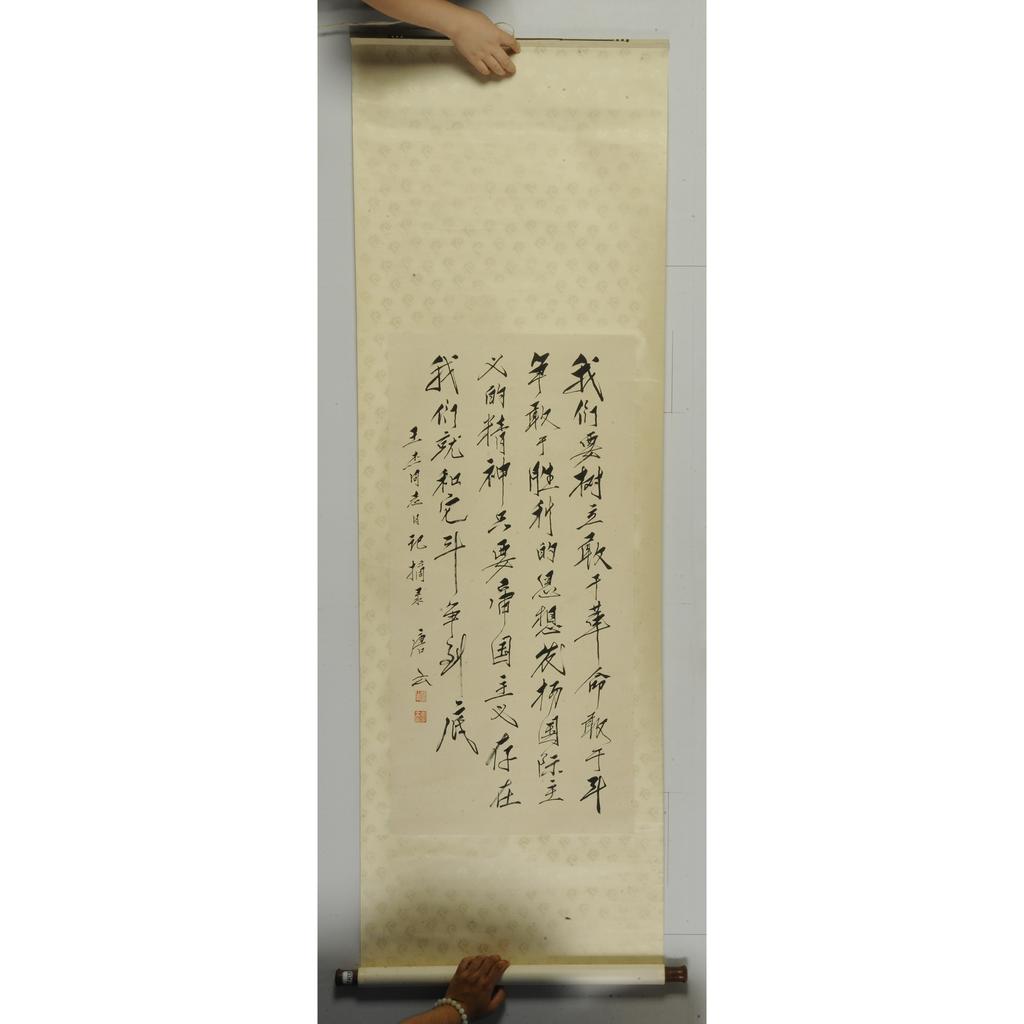 我们要树立敢于革命敢于斗
争敢于胜利的思想发扬国际主
义的精神只要帝国主义存在
我们就和它斗争到底
王杰同志日记摘录 唐云